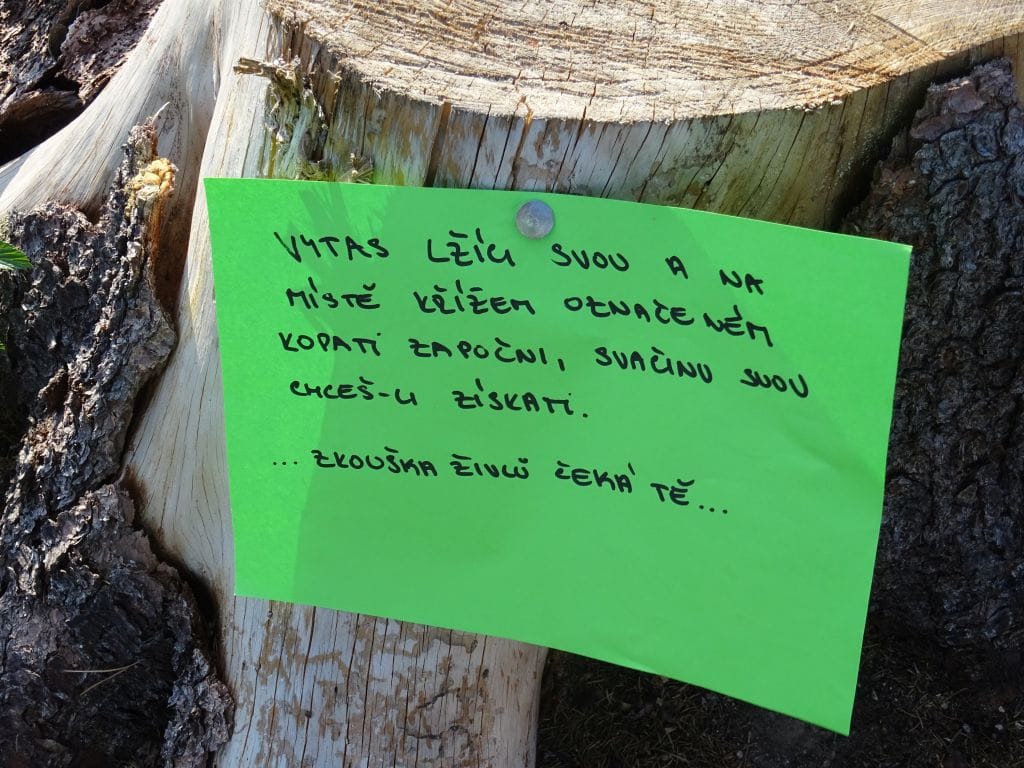 VYTAS LŽÍCI SVOU A NA
MÍSTĚ KŘÍŽEM OZNAČENÉM
KOPATI ZAPOČNI, SVAČINU SVOU
CHCEŠ-LI ZÍSKATI.
... ZKOUŠKA ŽIVLŮ ČEKÁ TĚ...